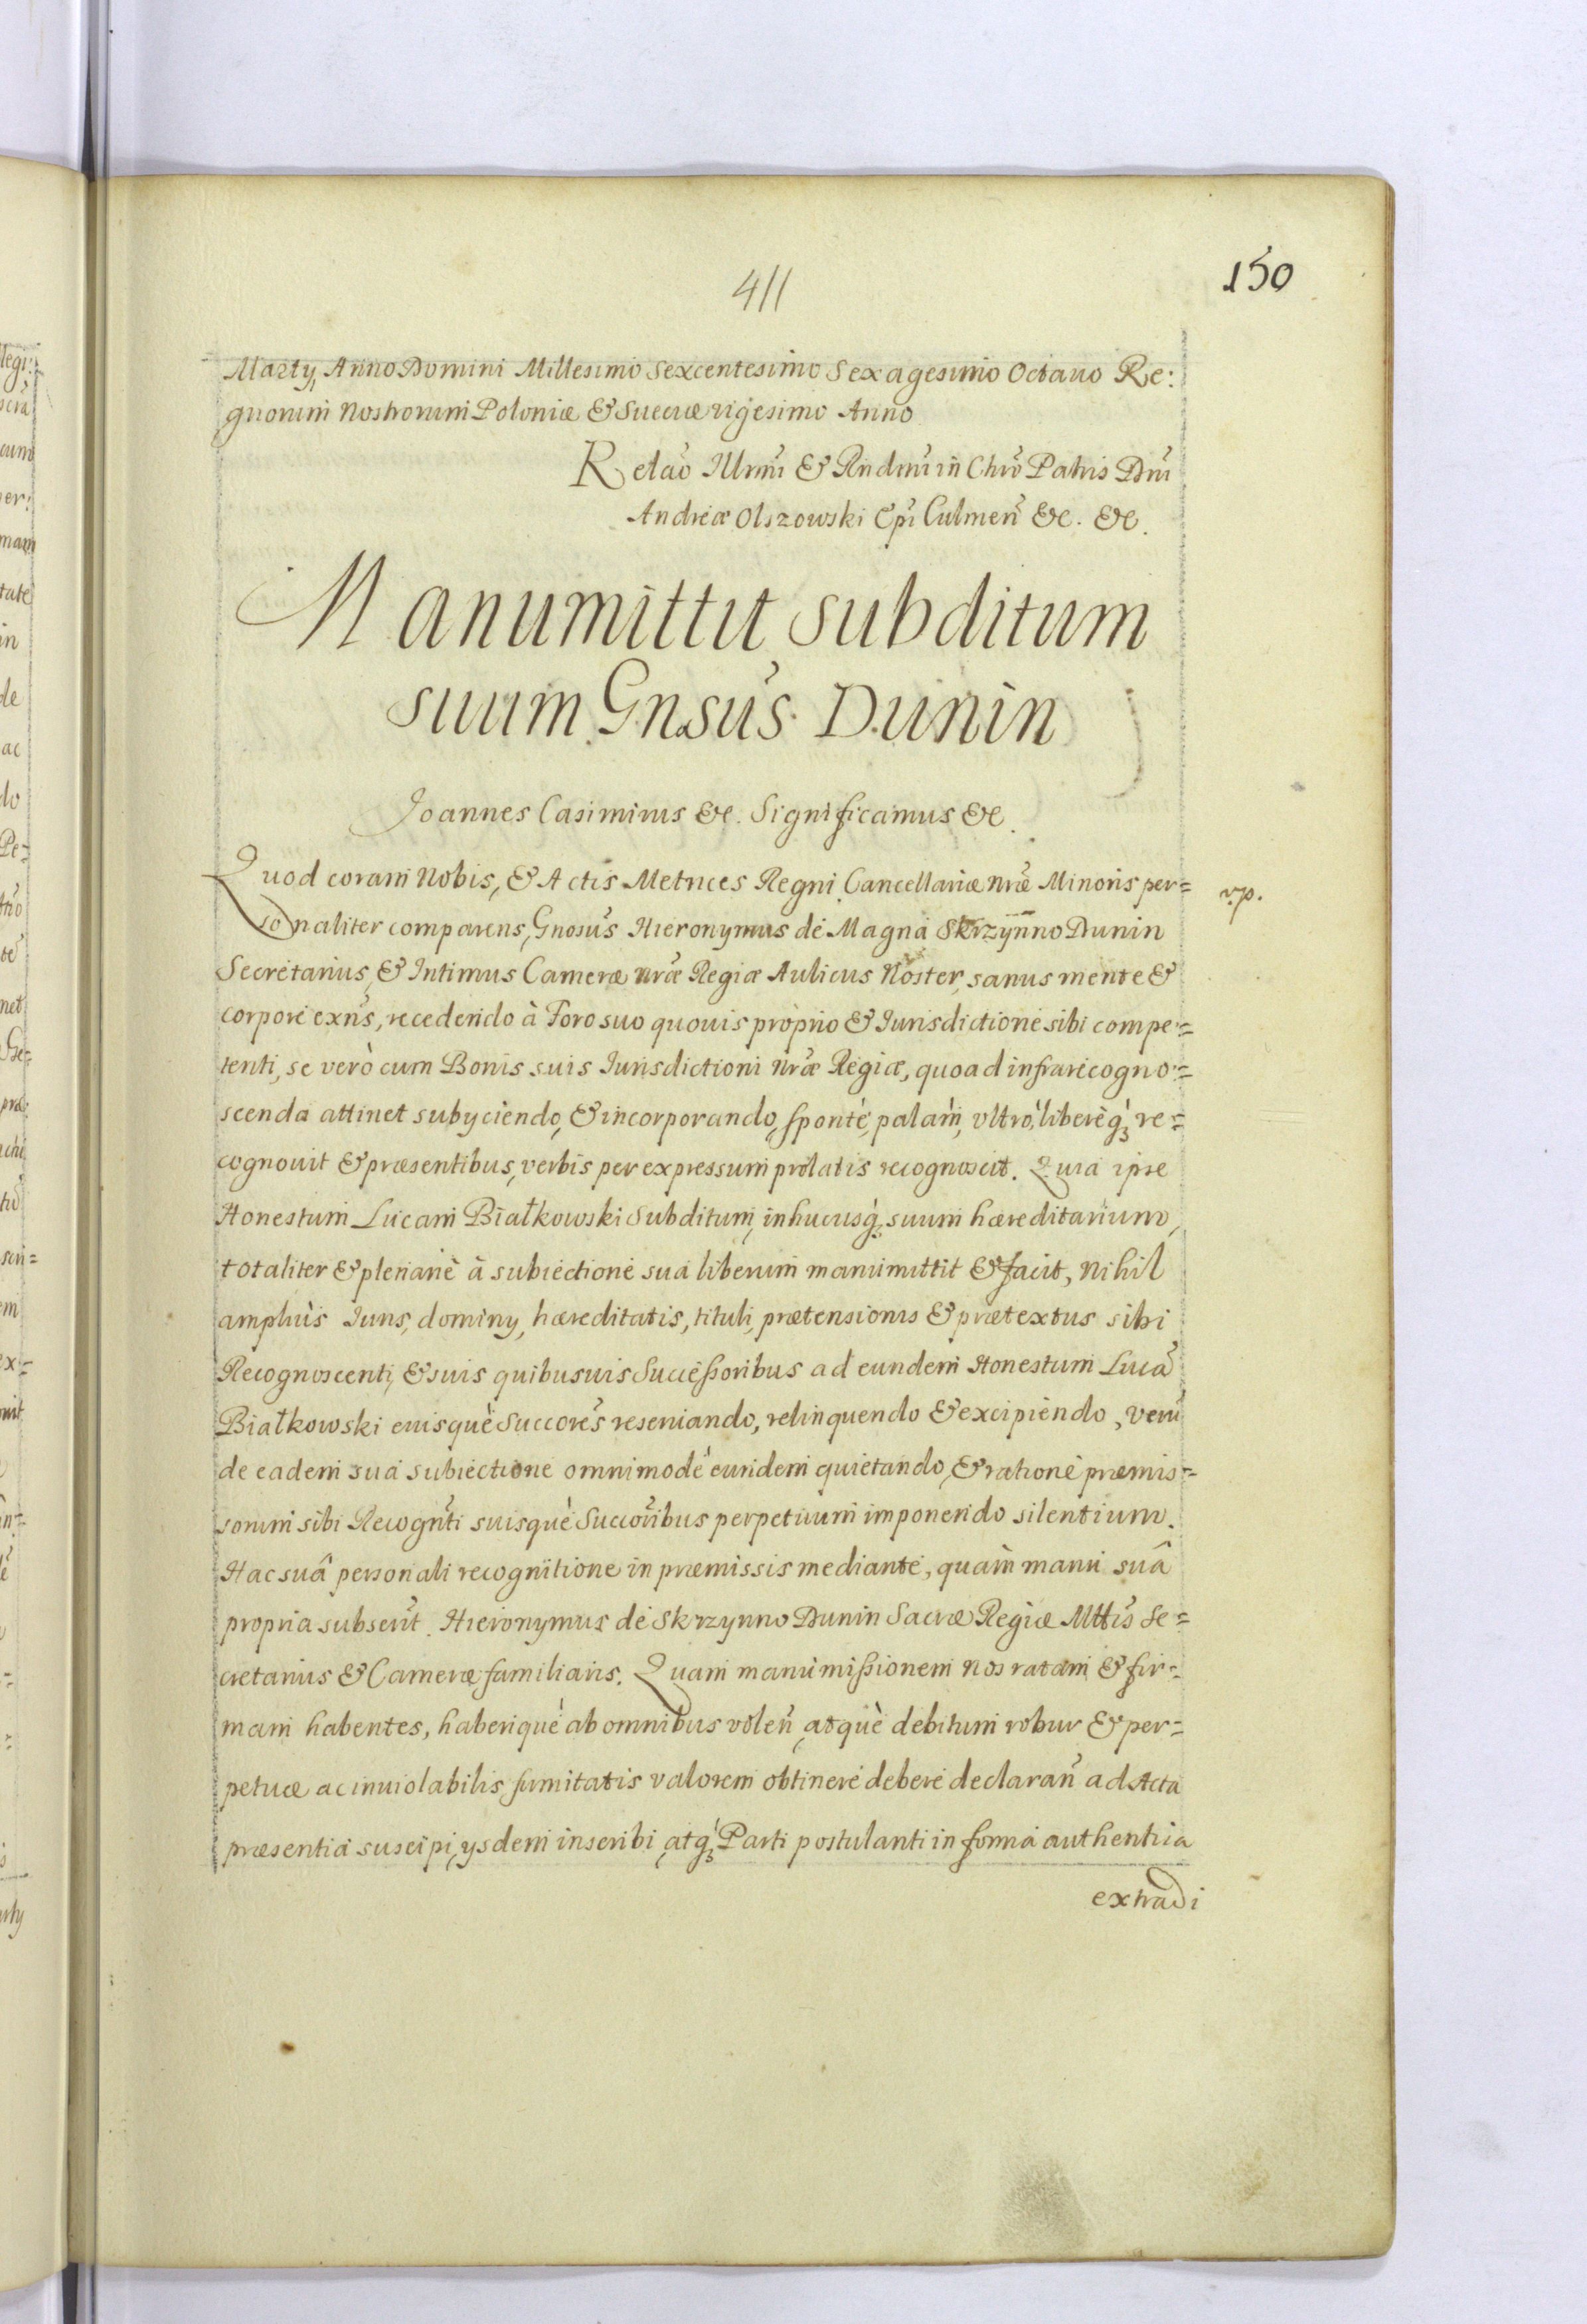 411
150
Marty, Anno Domini Millesimo Sexcentesimo Sexagesimo Octauo Re:
gnorum Nostrorum Poloniæ & Sueciæ vigesimo Anno
Relaõ Illrmi & Rndmi in Chrõ Patris Dni
Andreæ Olszowski Epi Culmeñ &c. &c.
Manumittit subditum
suum Gnsus Dunin
Joannes Casimirus &c. Significamus &c.
Quod coram Nobis, & Actis Metrices Regni Cancellariæ nræ Minoris per=
sonaliter comparens, Gnosus Hieronymus de Magna Skrzynno Dunin
Secretarius, & Intimus Cameræ nræ Regiæ Aulicus Noster, sanus mente &
corpore exns, recedendo à Foro suo quouis proprio & Jurisdictione sibi compe=
tenti, se verò cum Bonis suis Jurisdictioni nræ Regiæ, quoad infrarecogno=
scenda attinet subyciendo, & incorporando, sponte, palam, vltrò, liberèq́ꝫ re=
cognouit & præsentibus, verbis per expressum prolatis recognoscit. Quia ipse
Honestum Lucam Białkowski Subditum, inhucusq́, suum hæreditarium,
totaliter & plenarie à subiectione sua liberum manumittit & facit, Nihil
ampliùs Juris, dominy, hæreditatis, tituli, prætensionis & prætextus sibi
Recognoscenti, & suis quibusuis Successoribus ad eundem Honestum Lucã
Białkowski eiusquè Succores reseruando, relinquendo & excipiendo, verũ
de eadem sua subiectione omnimode eundem quietando, & ratione præmis=
sorum sibi Recognti suisquè Succoribus perpetuum imponendo silentium.
Hac suâ personali recognitione in præmissis mediante, quam manu suâ
propria subscrit. Hieronymus de Skrzynno Dunin Sacræ Regiæ Mttis Se=
cretarius & Cameræ familiaris. Quam manumissionem nos ratam & fir=
mam habentes, haberiquè ab omnibus voleñ, atquè debitum robur & per=
petuæ ac inuiolabilis firmitatis valorem obtinere debere declarañ ad Acta
præsentia suscipi, ysdem inscribi, atq́ꝫ Parti postulanti in forma authentica
extradi